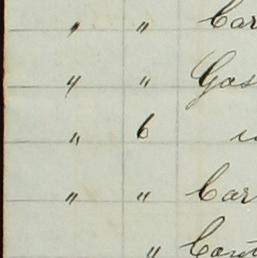 " " Car
" " Gas
" 6
" " Car
" Cont